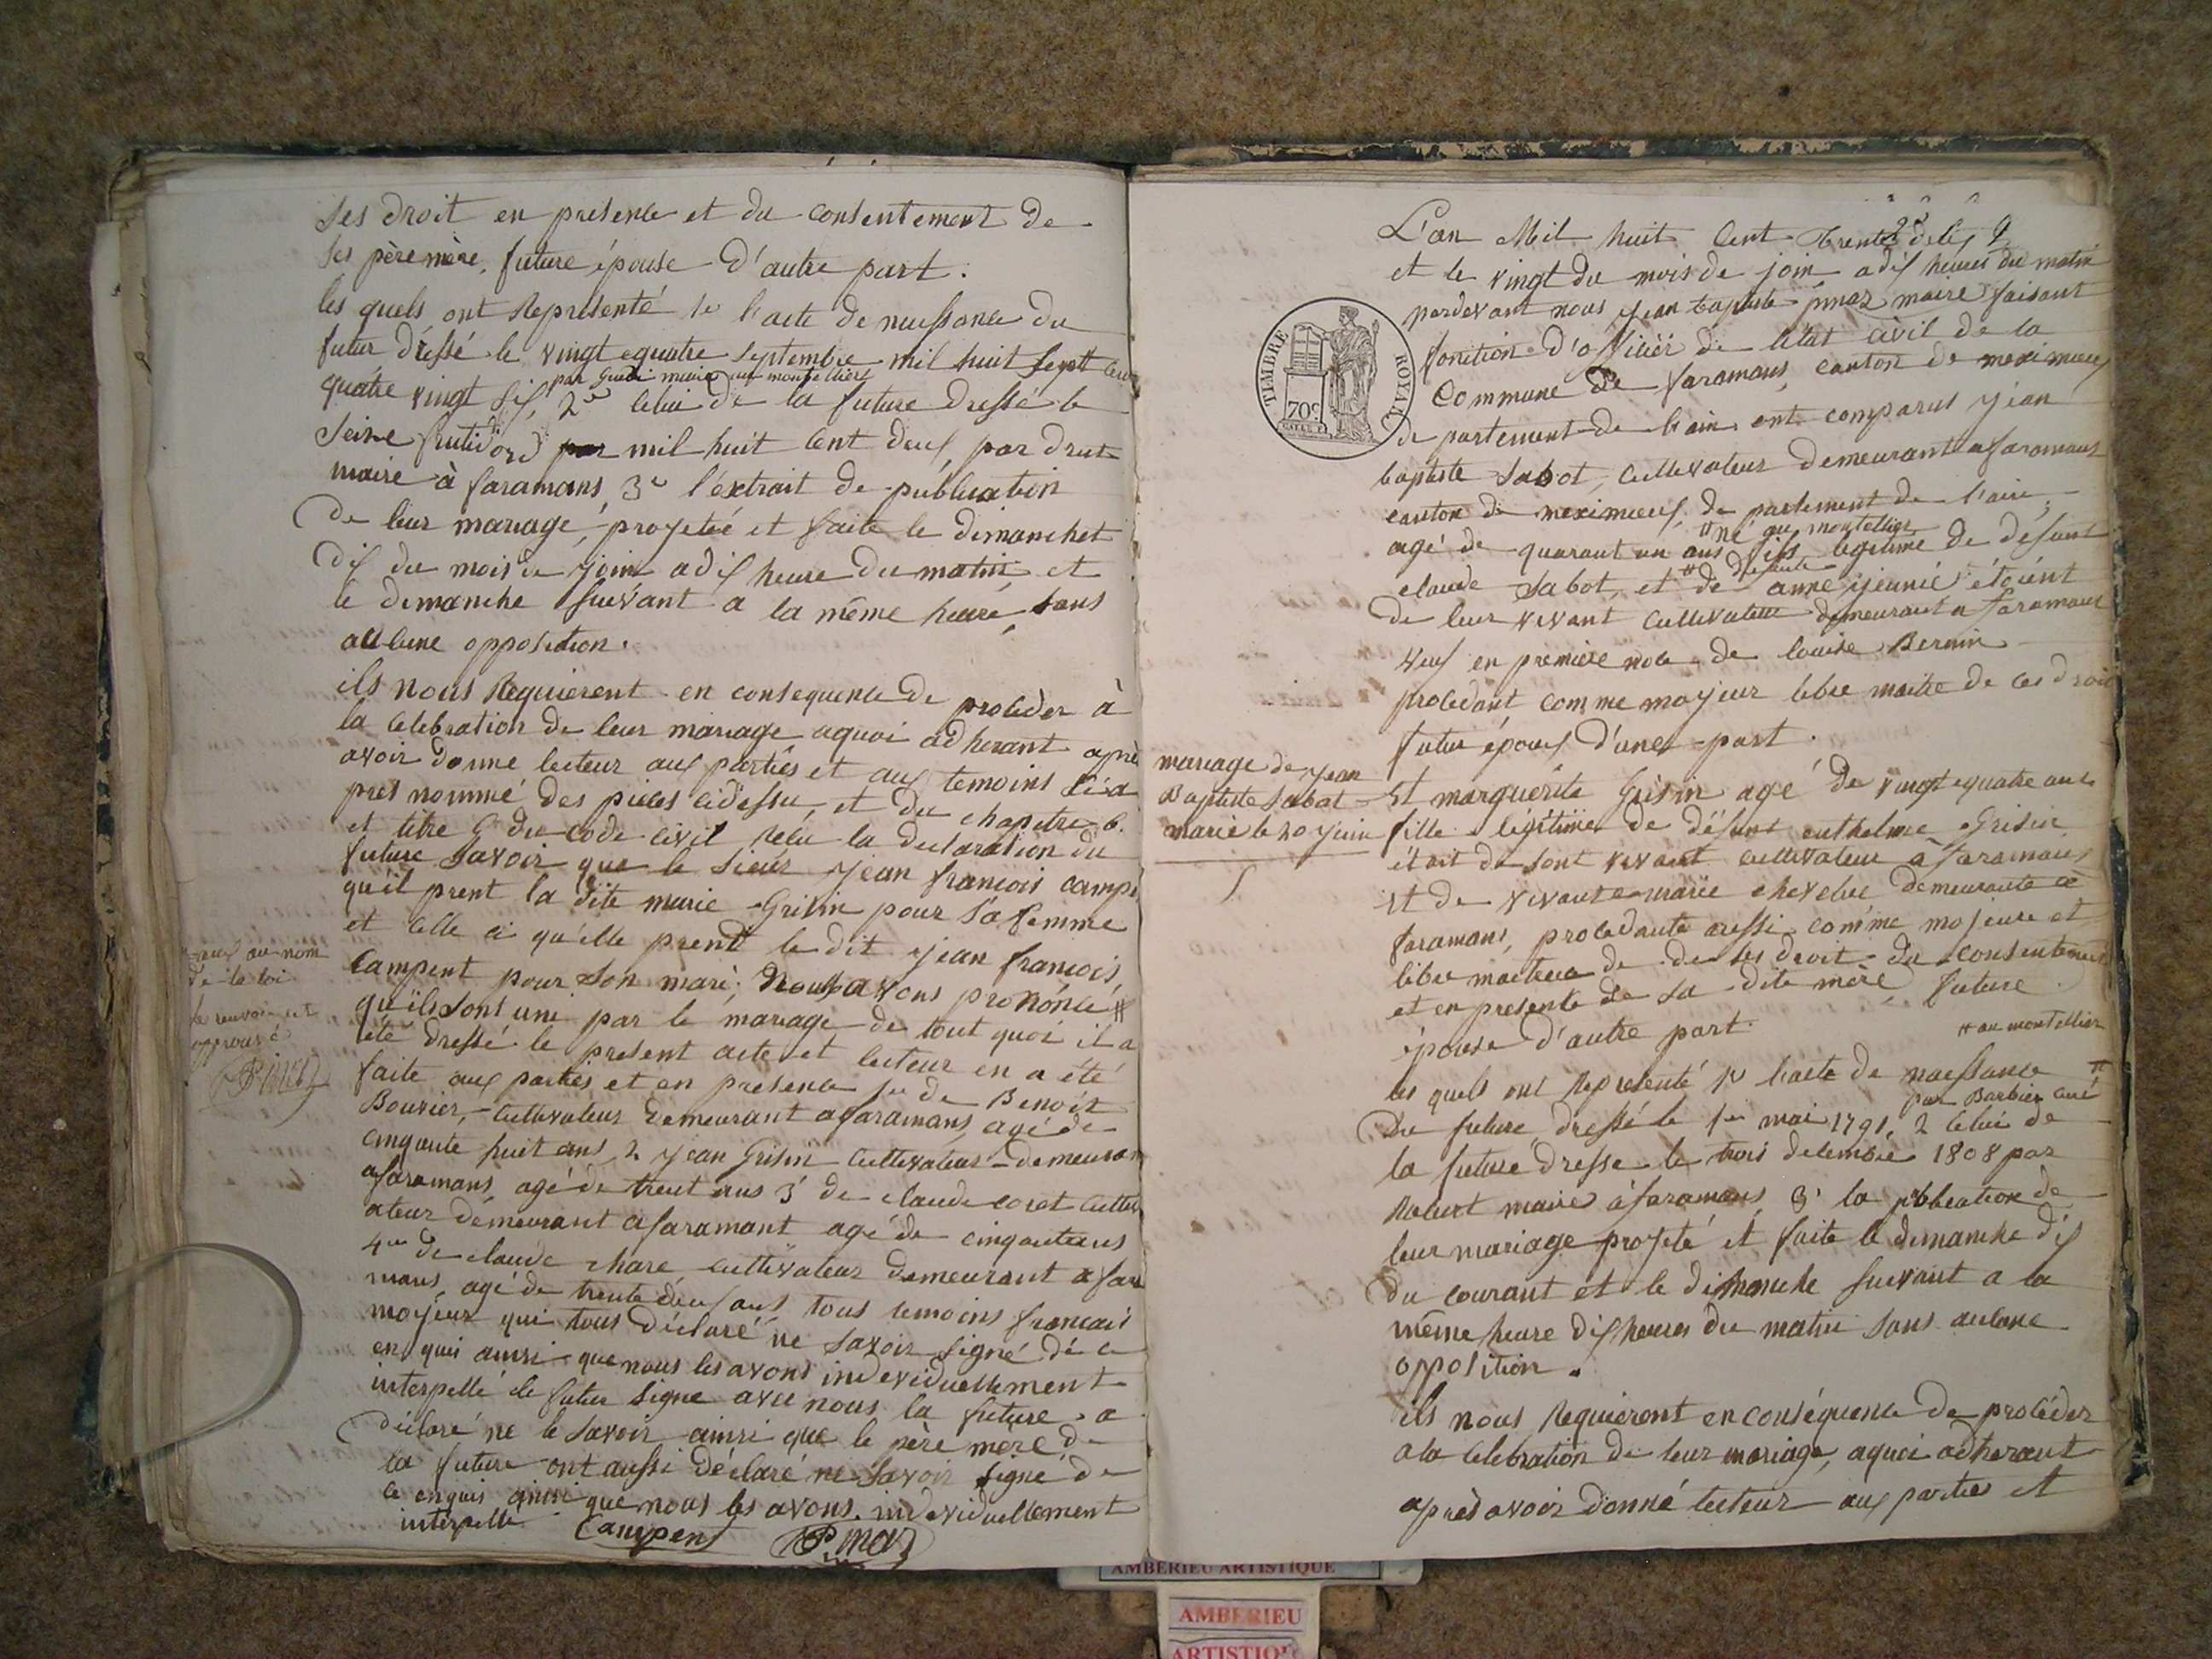 ses droit en presence et du consentement de
ses père mère, future épouse d'autre part.
les quels ont Représenté 1e l'acte de naissance du
futur dressé le vingt equatre septembre mil huit sept cent
par maire au montellier
quatre vingt dix, 2e celui de la future dressé le
seize frutidord mil huit cent deux, par drut
maire à faramans, 3e l'éxtrait de publication
de leur mariage, projetéé et faite le dimanchet
dix du mois de join adix heure du matin et
le dimanche suivant a la même heure, sans
aucune opposition.
ils nous Requierent en consequence de proceder à
la celebration de leur mariage aquoi adherant aprè
avoir donné lecteur aux partiés et aux temoins ci a
pres nommé des pieces cidessu, et du chapitre 6.
et titre 5 du code civil Relu la declaration du
future savoir que le sieur jean francois campe
qu'il prent la dite marie Grisin pour sa femme
et celle ci qu'elle prent le dit jean francois
Campent pour son mari; nous avons prononcé #
qu'ils sont uni par le mariage de tout quoi il a
été dressé le present acte et lecteur en a été
faite aux parties et en presence 1er de Benoit
Bouvier, cultivateur demeurant a faramans, agé de
cinquante huit ans, 2 jean Grisin cultivateur demeuran
afaramans, agé de trent ans 3e de claude coret cultiv
ateur demeurant afaramant agé de cinquateans
4me de claude chare cultivateur demeurant a fara
mans, agé de trente deux ans, tous temoins francais
majeur qui tous déclaré ne savoir signé dé ce
enquis ainsi que nous les avons individuellement
interpellé le futur signe avec nous la future a
déclaré ne le savoir ainsi que le père mère de
la future ont aussi déclaré ne savoir signe de
ce enquis ainsi que nous les avons individuellement
interpellé
Campent Pinaz
au nom
de la loi
le renvoi
approuvé
Pinaz
mariage de jean
Baptiste Sabot
marié le 20 juin
TIMBRE ROYAL
70c
L'an Mil huit Cent trente
et le vingt du mois de join a dix heures du matin
pardevant nous jean baptiste pinaz maire faisant
fonction d'officiér de l'état civil de la
Commune de faramans, canton de meximieux
de partement de l'ain ont comparus jéan
baptiste Sabot, cultivateur demeurant a faramans
canton de meximieux, de partement de l'ain,
# né au montellier
agé de quarant un ans fils legitime de défunt
defunte
claude Sabot, et # de anne étoient
de leur vivant cultivateur demeurant a faramans
veuf en premiere noce de louise Bernin
procedant comme majeur libre maitre de ces droit
futur époux d'une part.
Et marguerite Grisin agé de vingt equatre ans
fille legitime de défunt anthelme Grisin
étoit de sont vivant cultivateur à faramans
et de vivante marie chevelue demeurante à
faramans, procedante aussi comme majeure et
libre maitresse de de ses droit du consentement
et en presente de sa dite mère, future
épouse d'autre part.
# au montellier
les quels ont Representé 1e l'acte de naissance #
par Barbier curé
Du future dressé le 1er mai 1791, 2 celui de
la future dresse le trois decembre 1808 par
Robert maire à faramans, 3e la publication de
leur mariage projeté et faite le dimanche dix
du courant et le dimanche suivant a la
même heure dix heures du matin sans aucune
opposition.
ils nous Requierent en conséquence de procéder
a la celebration de leur mariage, aquoi adherant
après avoir donné lecteur aux partie et
AMBERIEU ARTISTIQUE
AMBERIEU
ARTISTIQUE